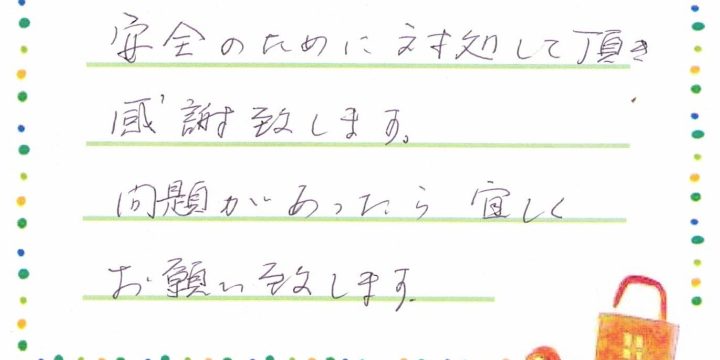 安全のために対処して頂き
感謝致します。
問題があったら宜しく
お願い致します。